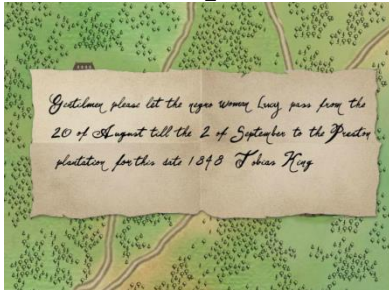 Gentilmen please let the negro woman Lucy pass from the
20 of August till the 2 of September to the Preston
plantation for this date 1848 Tobias King